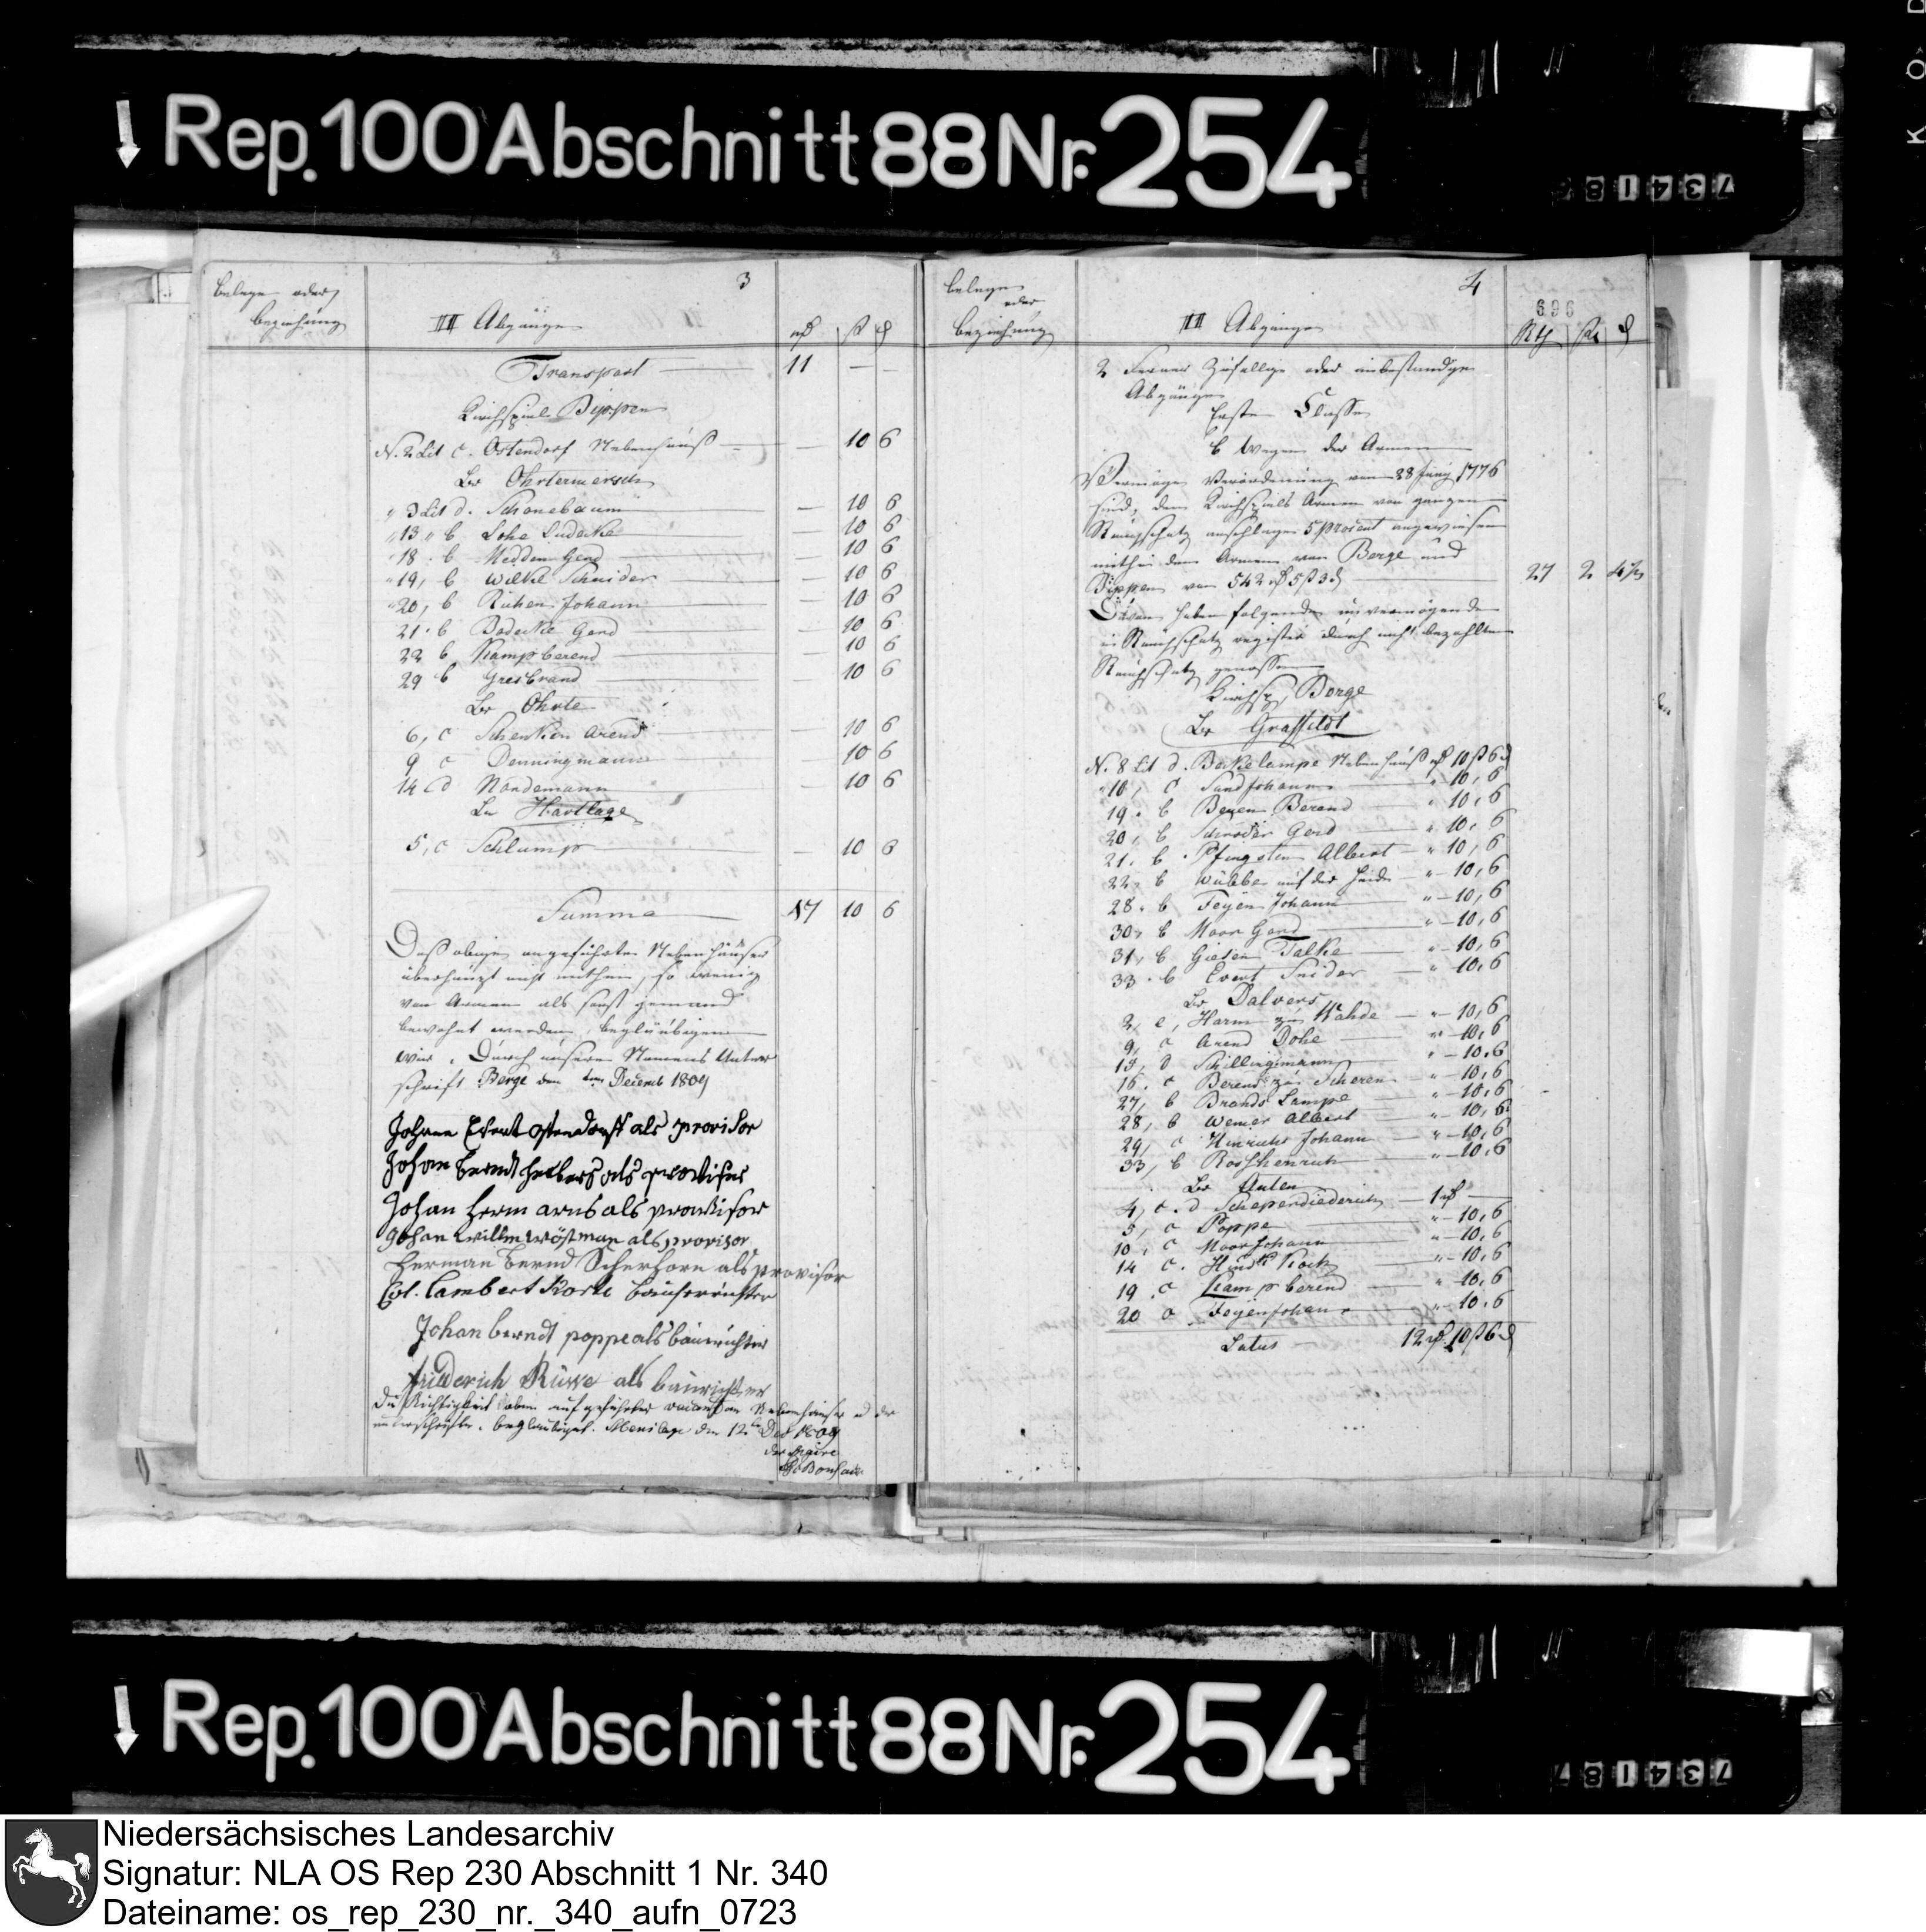 Rep. 100 Abschnitt 88 Nr. 254
734187
Belege oder
Beziehung
3
III Abgänge
Transport 11 — —
Kirchspiel Bippen
N. 2 Lit C. Ostendorf Nebenhauß — 10 6
Br Ohrtermersch
" 3 Lit d. Schonebaum — 10 6
" 13 " b Lohe Ludecke — 10 6
" 18 " b Medden Gerd — 10 6
" 19, b Wilke Schnider — 10 6
" 20, b Ruhen Johann — 10 6
21 " b Badecke Gerd — 10 6
22 b Kampberend — 10 6
29 b Gresbrand — 10 6
Br Ohrte
6, c Schenken Arend — 10 6
9 c Denningmann — 10 6
14 c d Nordemann — 10 6
Br Hartlage
5, c Schlump — 10 6
Summa 17 10 6
Daß obige angeführte Nebenhäuser
überhaupt nicht mithin, so wenig
von Armen als sonst jemand
bewohnt werden, beglaubigen
wir, Durch unsere Namens Unter
schrift Berge den Decemb 1809
Johann Evert Ostendorff als provisor
Johan Berndt Herbers als provisor
Johan Herm Arns als provisor
Johan Willm Wöstman als provisor
Herman Bernd Scherhorn als provisor
Col. Lambert Korte Bauerrichter
Johan berndt poppe als baurichter
friederich Rüwe als baurichter
Die Richtigkeit oben aufgeführter Nebenhäuser u der
unterschrifte, beglaubigt. Menslage den 12 Dec 1809
der Maire
Belege
oder
Beziehung
4
III Abgänge
696
Rth ß d
2 Ferner Zufällige oder unbestandige
Abgänge
Erste Classe
b Wegen der Armen
Vermöge Verordnung vom 28 Juny 1776
sind, dem Kirchspiels Armen von ganzen
Rauchschatz anschlage 5 Procent angewiesen
mithin den Armen von Berge und
Bippen von 542 rt 5 ß 3 d 27 2 4 3/4
Davon haben folgende unvermögende
in Rauchschatz register durch nicht bezahlten
Rauchschatz genossen
Kirchsp Berge
Br Grafteldt
N. 8 Lit d. Beckelampe Nebenhauß rt 10 ß 6 d
" 10, c Sandjohann " 10, 6
19 " b Beyen Berend " 10, 6
20, b Schroder Gerd " 10, 6
21, b Pfingsten Albert " 10, 6
22, b Wübbe auf der Heide " 10, 6
28, b Feyen Johann " 10, 6
30, b Moor Gerd " 10, 6
31, b Giesen Talke " 10, 6
33, b Evert Snider " 10, 6
Br Dalvers
2, e, Harm zur Wahde " 10, 6
9, c Arend Dohe " 10, 6
15, d Schillingmann " 10, 6
16, c Berend zur Scheren " 10, 6
27, b Brands Lampe " 10, 6
28, b Wemer Albert " 10, 6
29, c Hinrichs Johann " 10, 6
33, b Roshhenrich " 10, 6
Br Anten
4, c. d Schependiederich 1 rt —
5, c Poppe " 10, 6
10, c Moorjohann " 10, 6
14 c. Hindk Koch " 10, 6
19, c Kampberend " 10, 6
20 c Feyenjohan " 10, 6
Latus 12 rt 10 ß 6 d
Rep. 100 Abschnitt 88 Nr. 254
734187
Niedersächsisches Landesarchiv
Signatur: NLA OS Rep 230 Abschnitt 1 Nr. 340
Dateiname: os_rep_230_nr._340_aufn_0723